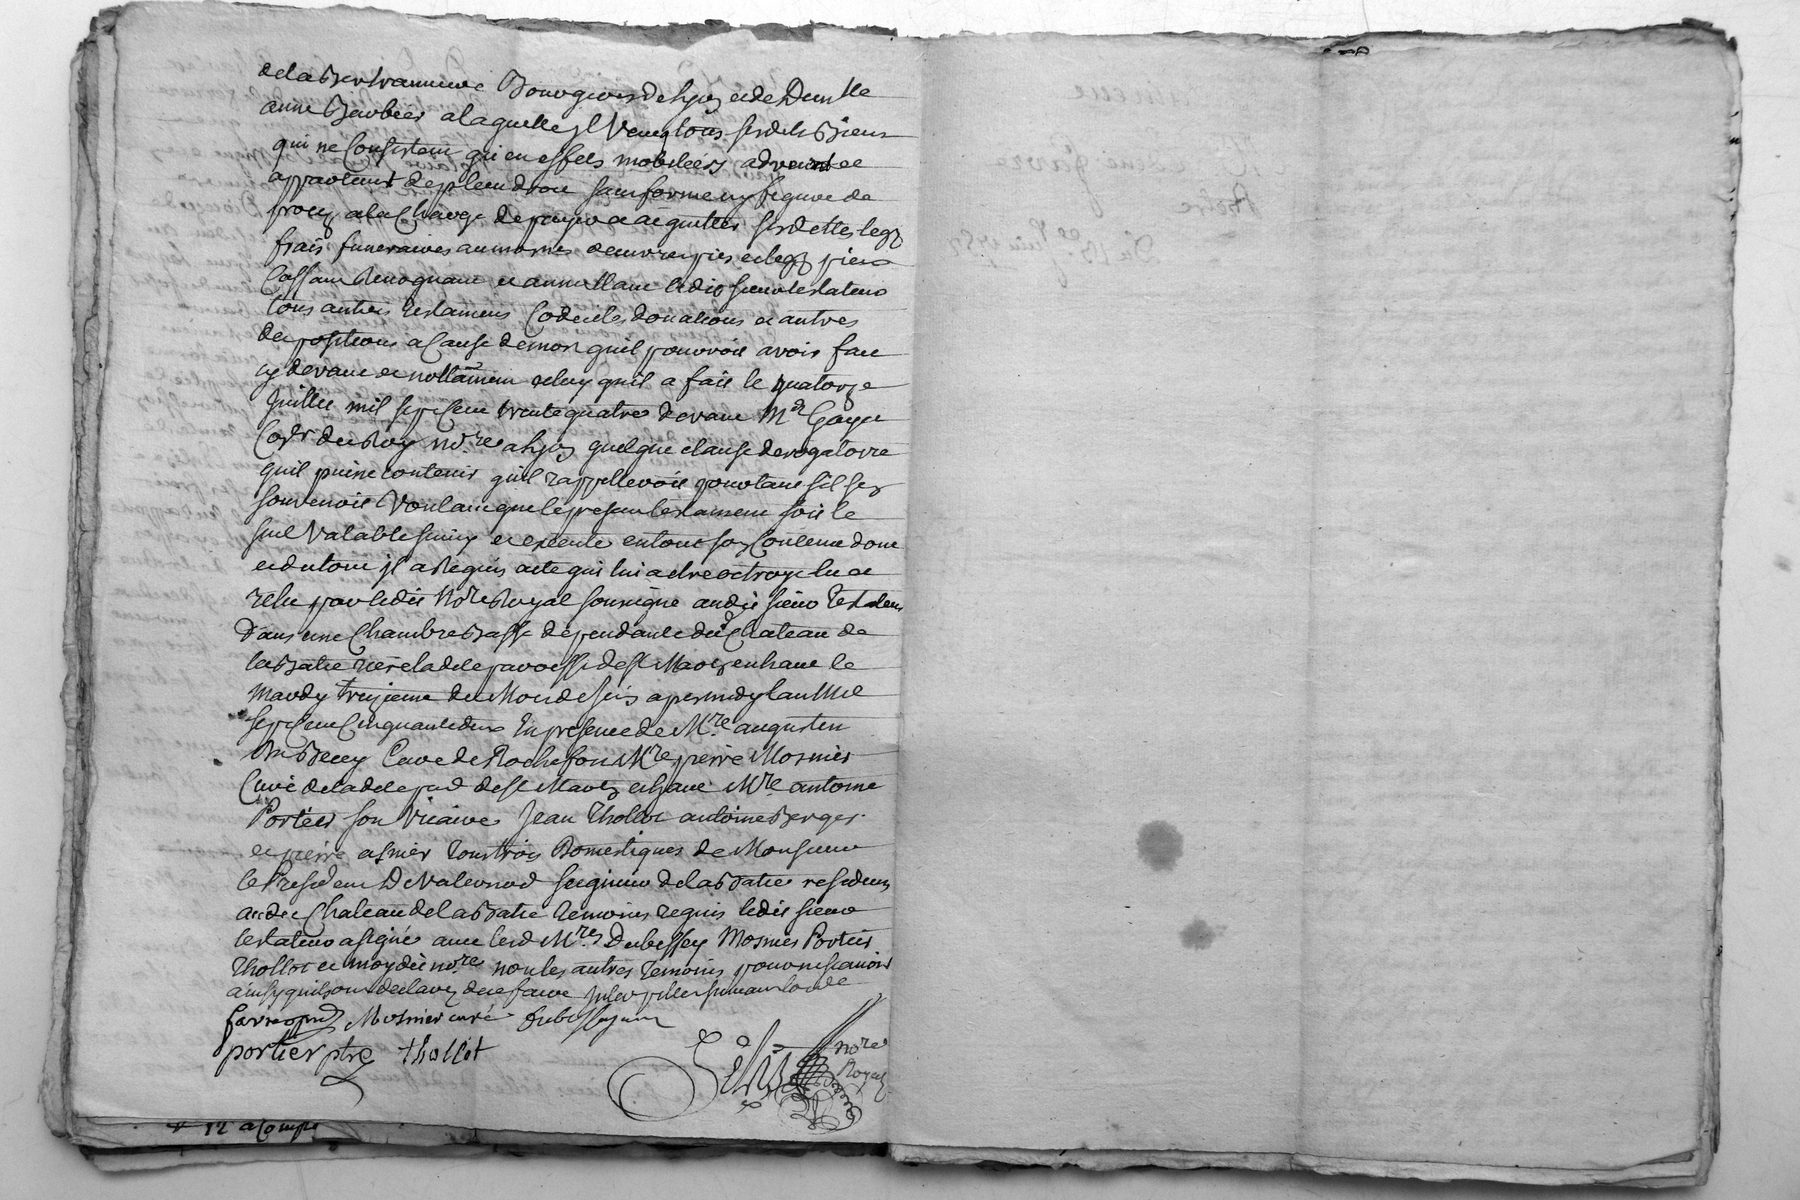 de la Bertranniere Bourgeois de Lyon et de Dem.lle
anne Barbier a laquelle Il Veut tous sesdits Biens
qui ne Consistent qu'en effets mobiliers advenir et
appartenir de plein droit sans forme ny figure de
procez a la Charge de payer et acquitter ses dettes legz
frais funeraires aumones oeuvres pies et legz pieux
Cassant Revoquant et annullant ledit sieur testateur
tous autres testamens Codicils donations et autres
dispositions a Cause de mort quil pourroit avoir fait
cy devant et nottament celuy quil a fait le quatorze
Juillet mil sept Cent trente quatre devant Me Gayet
Con.er du Roy no.re a Lyon quelque clause derogatoire
quil puisse contenir quil rappelleroit pourtant sil sen
souvenoit Voulant que le present testament soit le
seul Valable suivy et execute en tout son Contenu dont
et du tout jl a Requis acte qui lui a etre octroye lu et
relu par ledit No.re Royal soussigne audit sieur testateur
Dans une Chambre Basse dependante dud Chateau de
la Batie riere lad.e paroisse de St Martin en haut le
Mardy treizieme du Mois de Juin apres midy l'an Mil
sept Cent Cinquante deux En presence de M.re augustin
Du Bessey Curé de Rochefort M.re pierre Mosnier
Curé de lad.e par.d de St Martin en haut M.re antoine
Portier son Vicaire Jean Thollot antoine Berger
et pierre asnier tous trois Domestiques de Monsieur
le President De Valernod seigneur de la Batie residents
audit Chateau de la Batie temoins requis ledit sieur
testateur a signé avec lesd M.res Dubessey Mosnier Portier
Thollot et moy dit no.re non les autres temoins pour ne scavoir
ainsy quils ont declarez de ce faire Interpellés suivant lorde
favre
Mosnier curé Dubessey curé
portier ptre thollot
no.re
Royal
12 a Compte